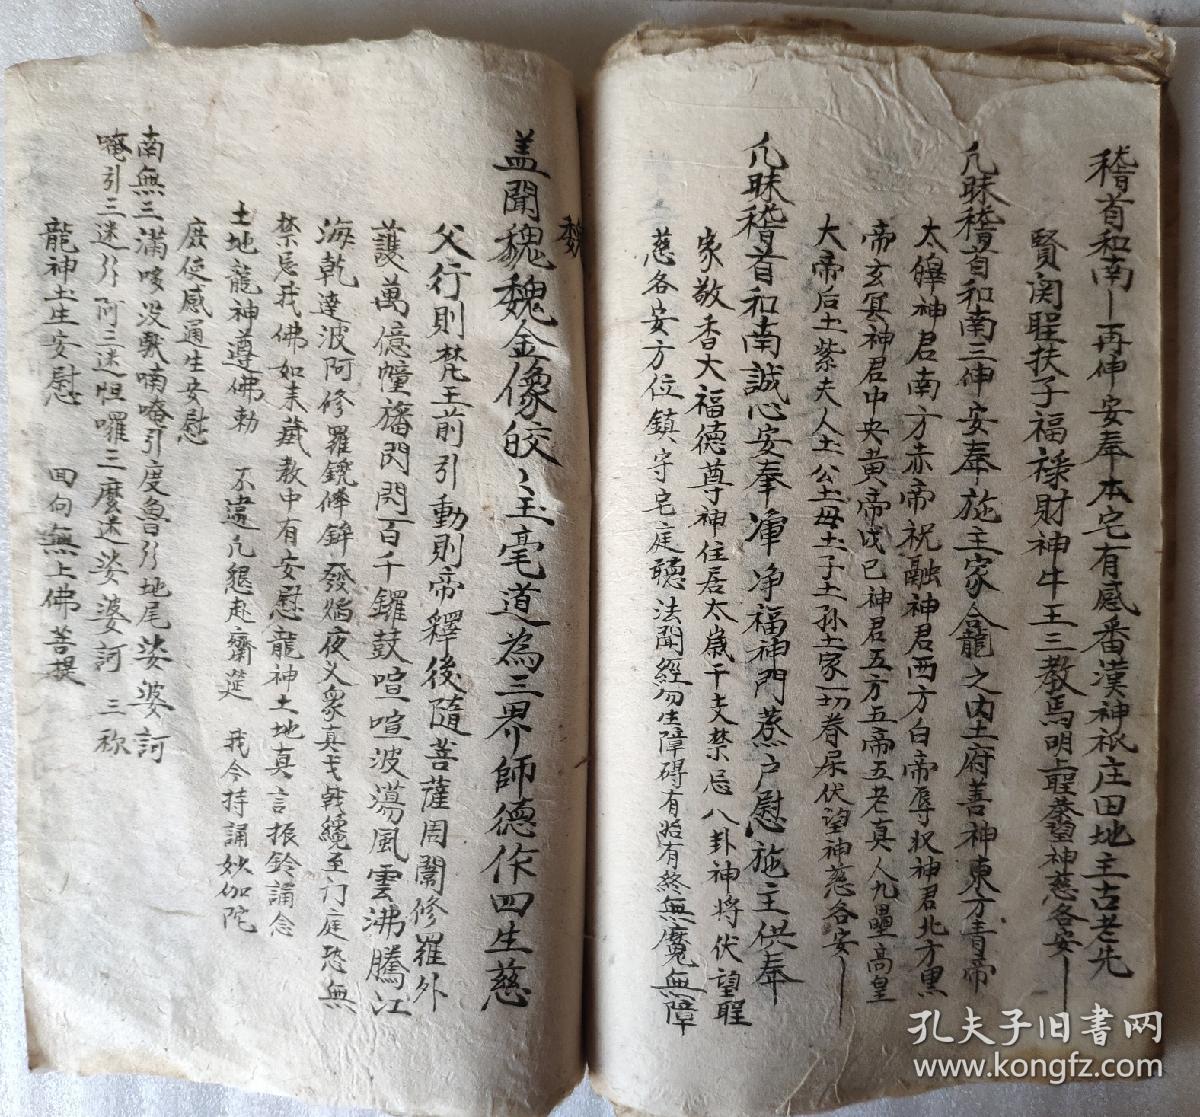 稽首和南丨再伸安奉本宅有感番漢神祇庄田地主古老先
賢関聖扶子福祿財神牛王三教馬明上聖恭望神慈各安丨
凡昧稽首和南三伸安奉施主家合龍之內土府善神東方青帝
太皞神君南方赤帝祝融神君西方白帝辱收神君北方黑
帝玄冥神君中央黄帝戊己神君五方五帝五老真人九壘高皇
大帝后土紫夫人土公土母土子土孫土家一切眷屬伏望神慈各安丨
凡昧稽首和南誠心安奉净福神門丞户慰施主供奉
家敬香大福德尊神住居太歲干支禁忌八卦神將伏望聖
慈各安方位鎮守宅庭聽法聞經勿生障碍有始有終無魔無障
魏
盖聞魏魏金像皎丶玉毫道為三界師德作四生慈
父行則梵王前引動則帝釋後隨菩薩周圍修羅外
護萬億幢旛閃閃百千鑼鼓喧喧波濤風雲沸騰江
海乾達波阿修羅鐃鈸發焰夜义衆真戈戟纔至门庭恐無
禁忌我佛如来藏教中有安慰龍神土地真言振鈴誦念
土地龍神尊佛勅 不違凡懇赴齋筵 我今持誦妙伽陀
庶使感通生安慰
南無三滿哆没馱喃唵引度魯引地尾娑婆訶
唵引三迷引阿三迷怛囉三麽迷娑婆訶 三称
龍神土生安慰 回向無上佛菩提
孔夫子旧書网
www.kongfz.com